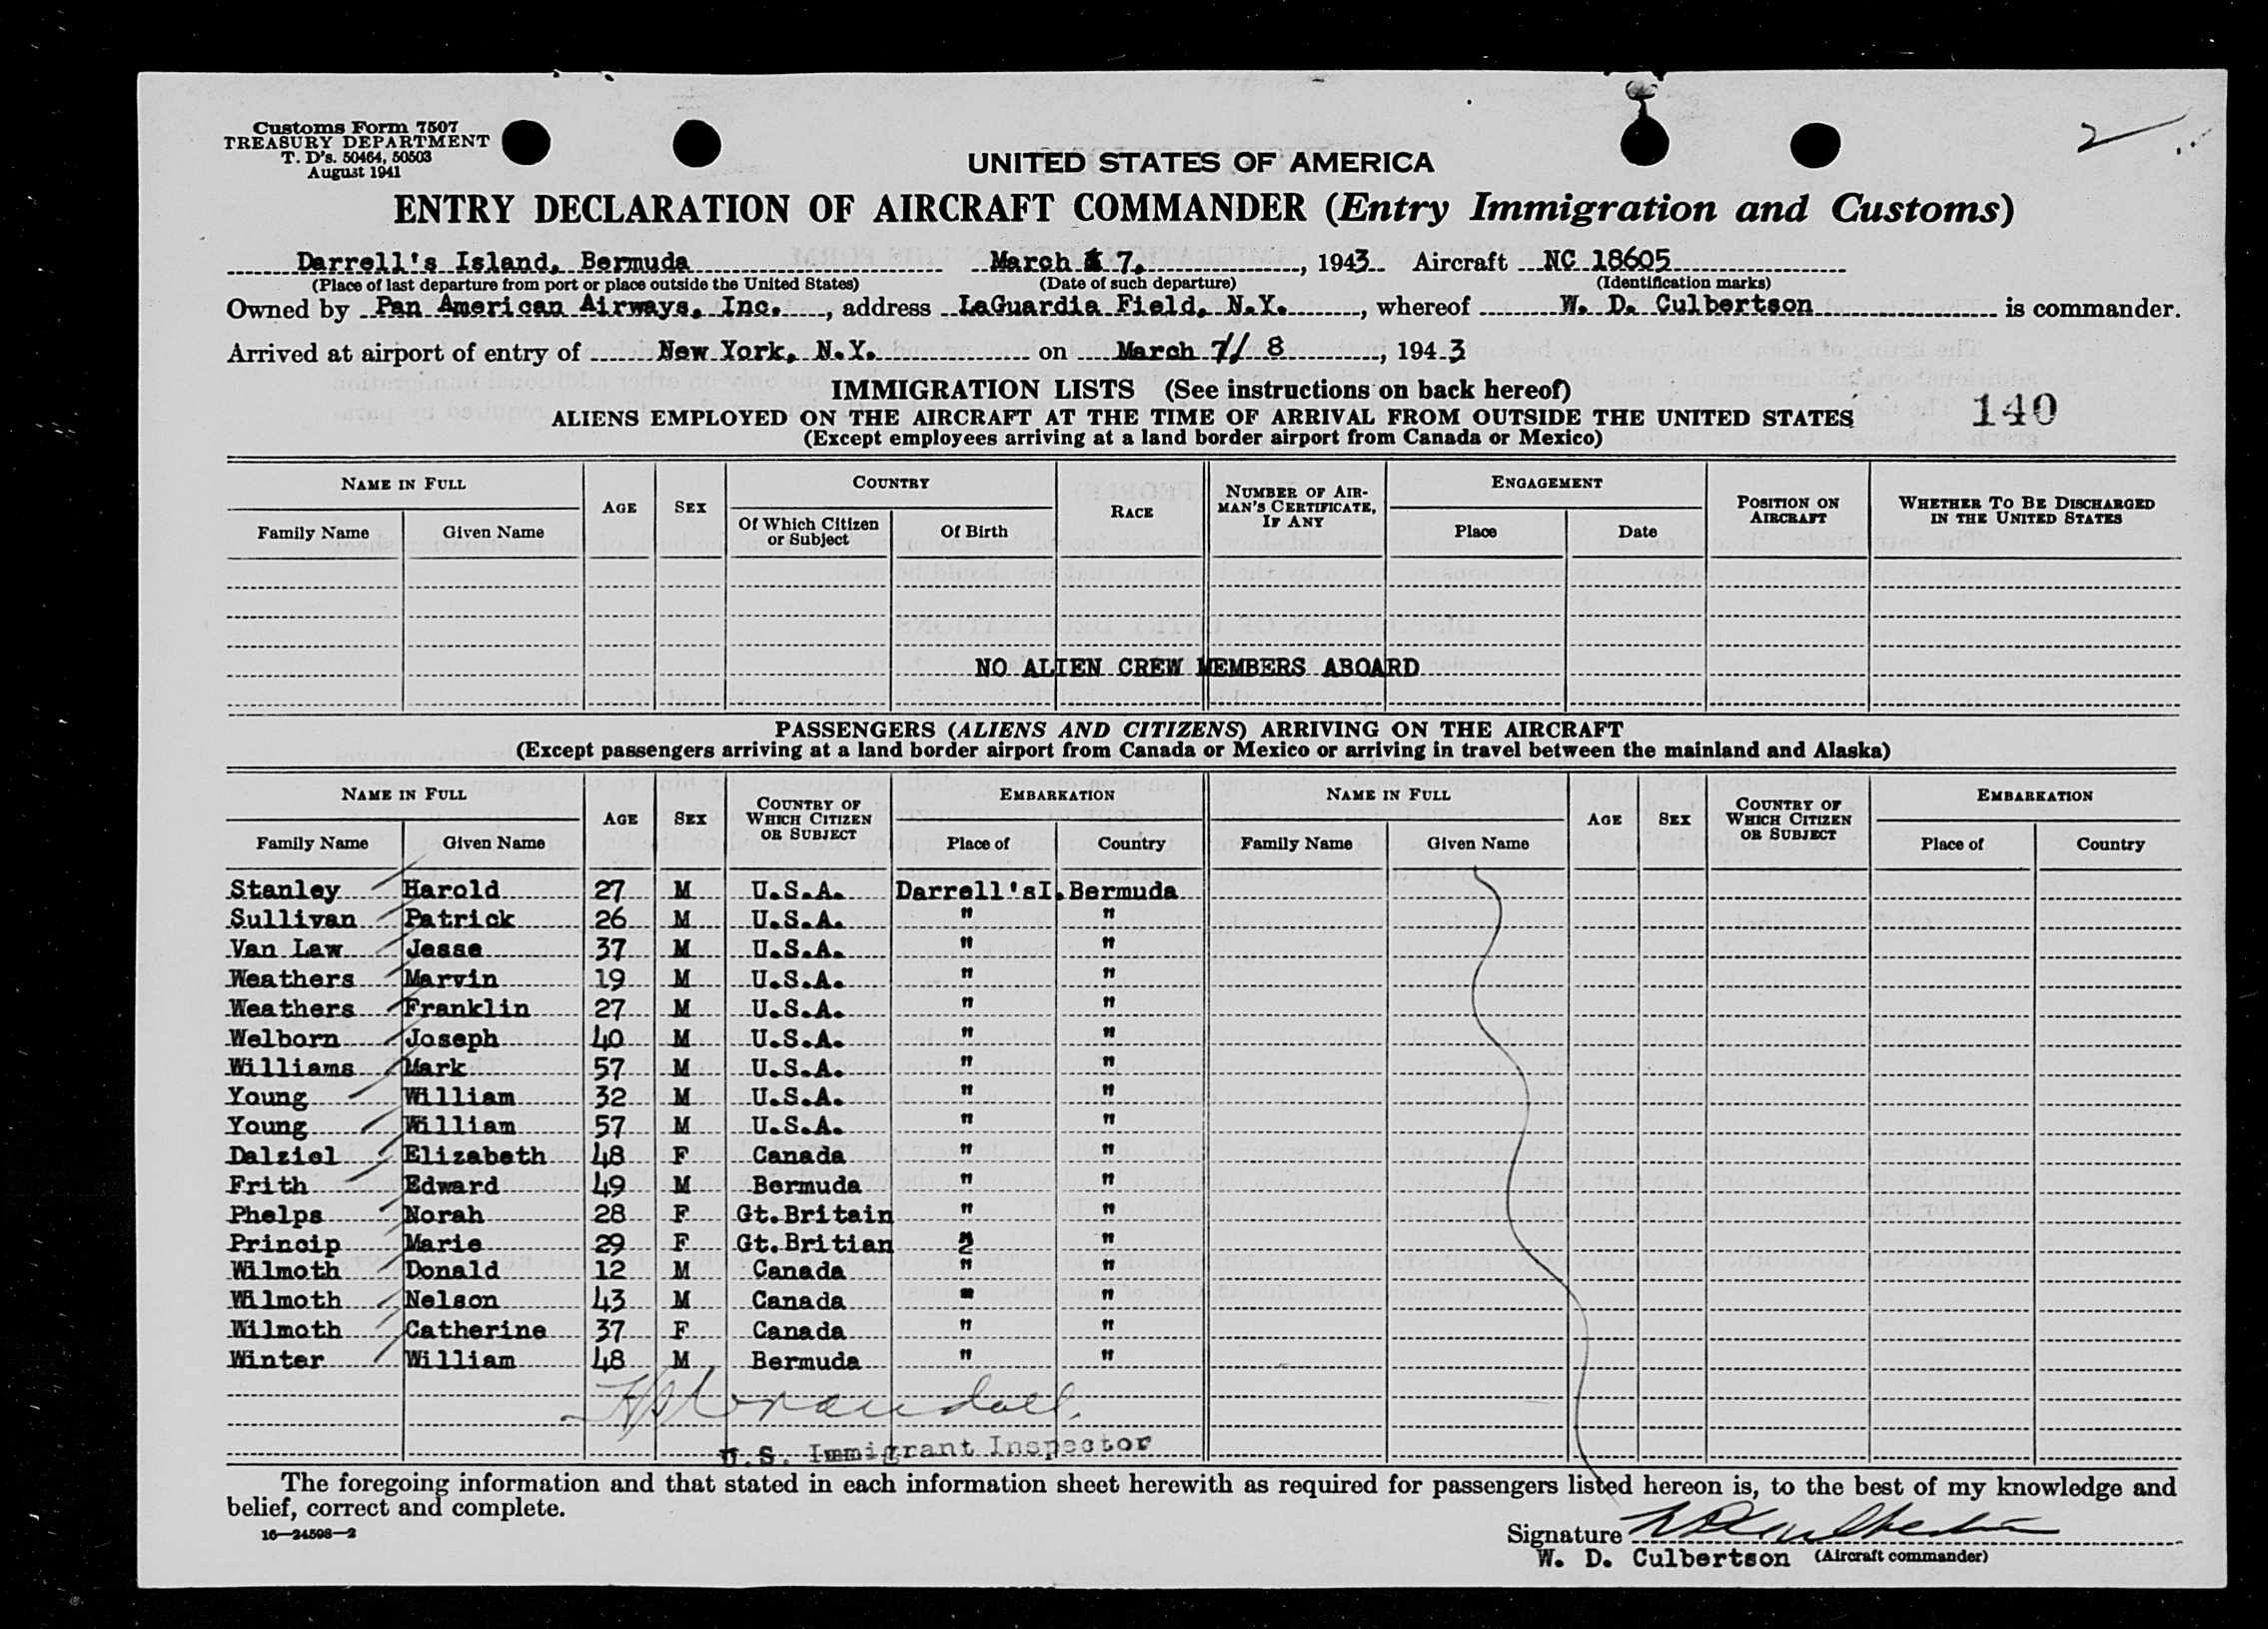 Customs Form 7507
TREASURY DEPARTMENT
T. D's. 50464, 50503
August 1941
2
UNITED STATES OF AMERICA
ENTRY DECLARATION OF AIRCRAFT COMMANDER (Entry Immigration and Customs)
Darrell's Island, Bermuda March 7, 1943 Aircraft NC 18605
(Place of last departure from port or place outside the United States) (Date of such departure) (Identification marks)
Owned by Pan American Airways, Inc., address LaGuardia Field, N.Y., whereof W. D. Culbertson is commander.
Arrived at airport of entry of New York, N.Y. on March 7/ 8, 1943
IMMIGRATION LISTS (See instructions on back hereof)
ALIENS EMPLOYED ON THE AIRCRAFT AT THE TIME OF ARRIVAL FROM OUTSIDE THE UNITED STATES 140
(Except employees arriving at a land border airport from Canada or Mexico)
NAME IN FULL AGE SEX COUNTRY RACE NUMBER OF AIRMAN'S CERTIFICATE, IF ANY ENGAGEMENT POSITION ON AIRCRAFT WHETHER TO BE DISCHARGED IN THE UNITED STATES
Family Name Given Name Of Which Citizen or Subject Of Birth Place Date
NO ALIEN CREW MEMBERS ABOARD
PASSENGERS (ALIENS AND CITIZENS) ARRIVING ON THE AIRCRAFT
(Except passengers arriving at a land border airport from Canada or Mexico or arriving in travel between the mainland and Alaska)
NAME IN FULL AGE SEX COUNTRY OF WHICH CITIZEN OR SUBJECT EMBARKATION NAME IN FULL AGE SEX COUNTRY OF WHICH CITIZEN OR SUBJECT EMBARKATION
Family Name Given Name Place of Country Family Name Given Name Place of Country
Stanley Harold 27 M U.S.A. Darrell'sI. Bermuda
Sullivan Patrick 26 M U.S.A. " "
Van Law Jesse 37 M U.S.A. " "
Weathers Marvin 19 M U.S.A. " "
Weathers Franklin 27 M U.S.A. " "
Welborn Joseph 40 M U.S.A. " "
Williams Mark 57 M U.S.A. " "
Young William 32 M U.S.A. " "
Young William 57 M U.S.A. " "
Dalziel Elizabeth 48 F Canada " "
Frith Edward 49 M Bermuda " "
Phelps Norah 28 F Gt.Britain " "
Princip Marie 29 F Gt.Britian " "
Wilmoth Donald 12 M Canada " "
Wilmoth Nelson 43 M Canada " "
Wilmoth Catherine 37 F Canada " "
Winter William 48 M Bermuda " "
U.S. Immigrant Inspector
The foregoing information and that stated in each information sheet herewith as required for passengers listed hereon is, to the best of my knowledge and
belief, correct and complete.
16—24598—2
Signature
W. D. Culbertson (Aircraft commander)